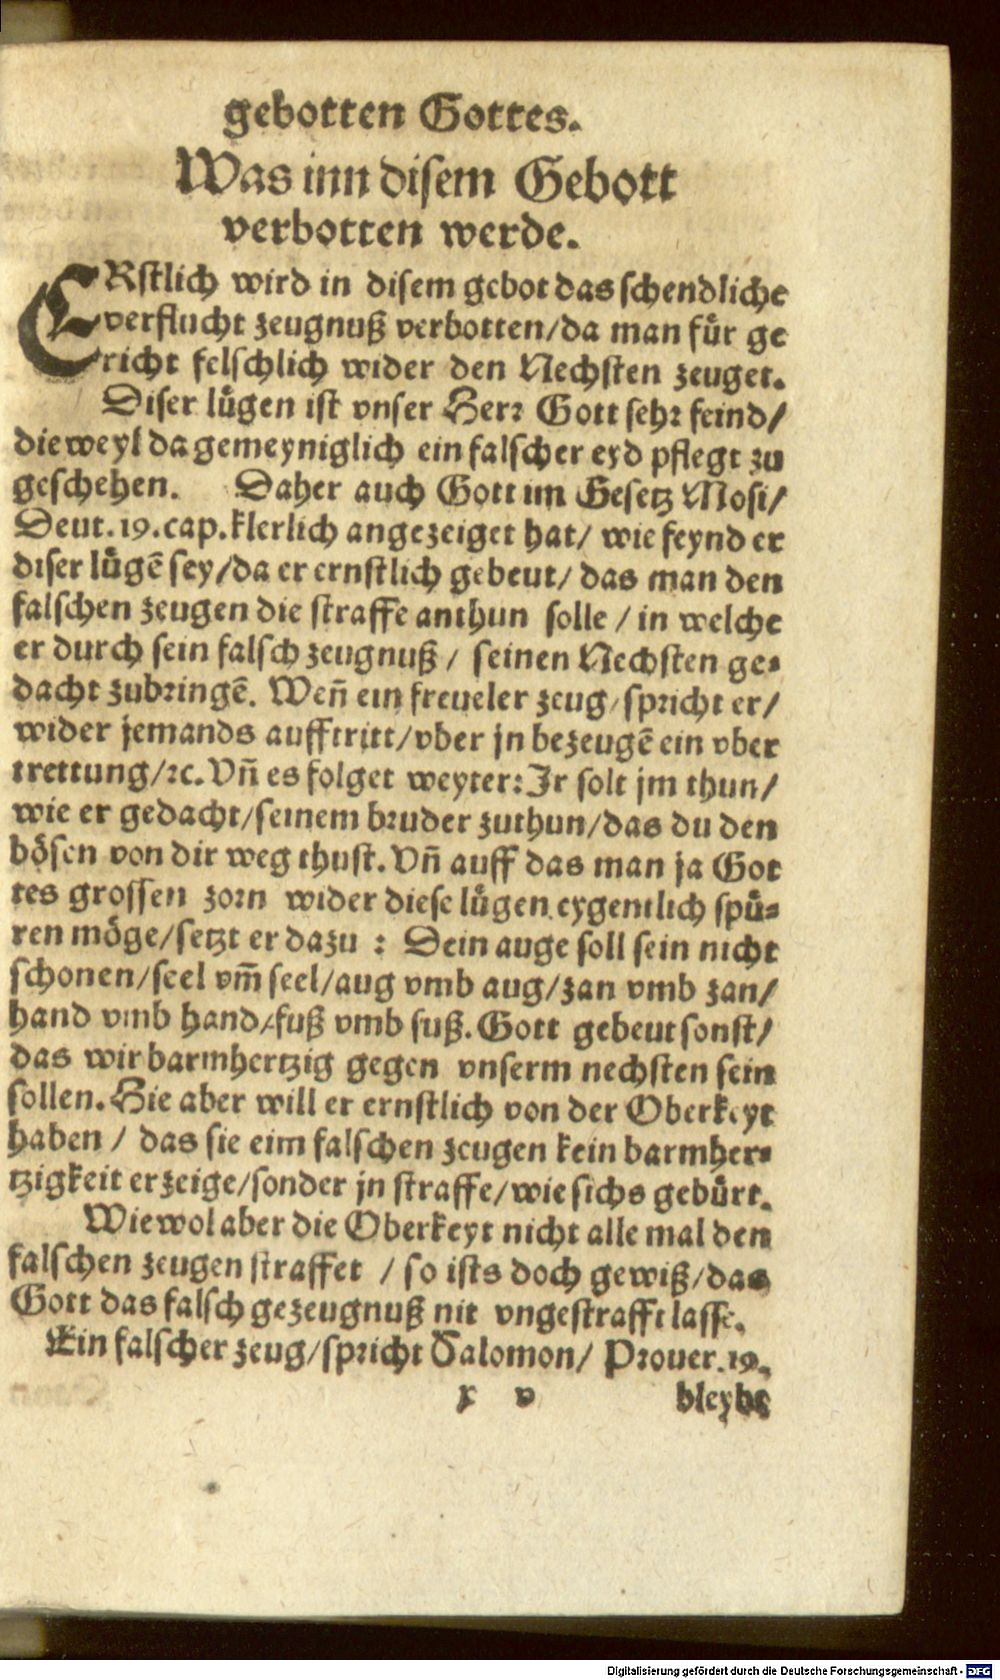 gebotten Gottes.
Was inn disem Gebott
verbotten werde.
ERstlich wird in disem gebot das schendliche
verflucht zeugnuß verbotten/da man fuͤr ge
richt felschlich wider den Nechsten zeuget.
Diser luͤgen ist vnser Herr Gott sehr feind/
dieweyl da gemeyniglich ein falscher eyd pflegt zu
geschehen. Daher auch Gott im Gesetz Mosi/
Deut. 19. cap. klerlich angezeiget hat/ wie feynd er
diser luͤgẽ sey/da er ernstlich gebeut/ das man den
falschen zeugen die straffe anthun solle / in welche
er durch sein falsch zeugnuß / seinen Nechsten ge⸗
dacht zubringẽ. Weñ ein freueler zeug/spricht er/
wider jemands aufftritt/vber jn bezeugẽ ein vber
trettung/ꝛc. Vñ es folget weyter: Ir solt jm thun/
wie er gedacht/seinem bruder zuthun/das du den
boͤsen von dir weg thust. Vñ auff das man ja Got
tes grossen zorn wider diese luͤgen eygentlich spuͤ⸗
ren moͤge/setzt er dazu : Dein auge soll sein nicht
schonen/seel vm̃ seel/aug vmb aug/zan vmb zan/
hand vmb hand/fuß vmb fuß. Gott gebeut sonst/
das wir barmhertzig gegen vnserm nechsten sein
sollen. Hie aber will er ernstlich von der Oberkeyt
haben / das sie eim falschen zeugen kein barmher⸗
tzigkeit erzeige/sonder jn straffe/wie sichs gebuͤrt.
Wiewol aber die Oberkeyt nicht alle mal den
falschen zeugen straffet / so ists doch gewiß/das
Gott das falsch gezeugnuß nit vngestrafft lasse.
Ein falscher zeug/spricht Salomon/ Prouer. 19.
x v bleybt
Digitalisierung gefördert durch die Deutsche Forschungsgemeinschaft - DFG